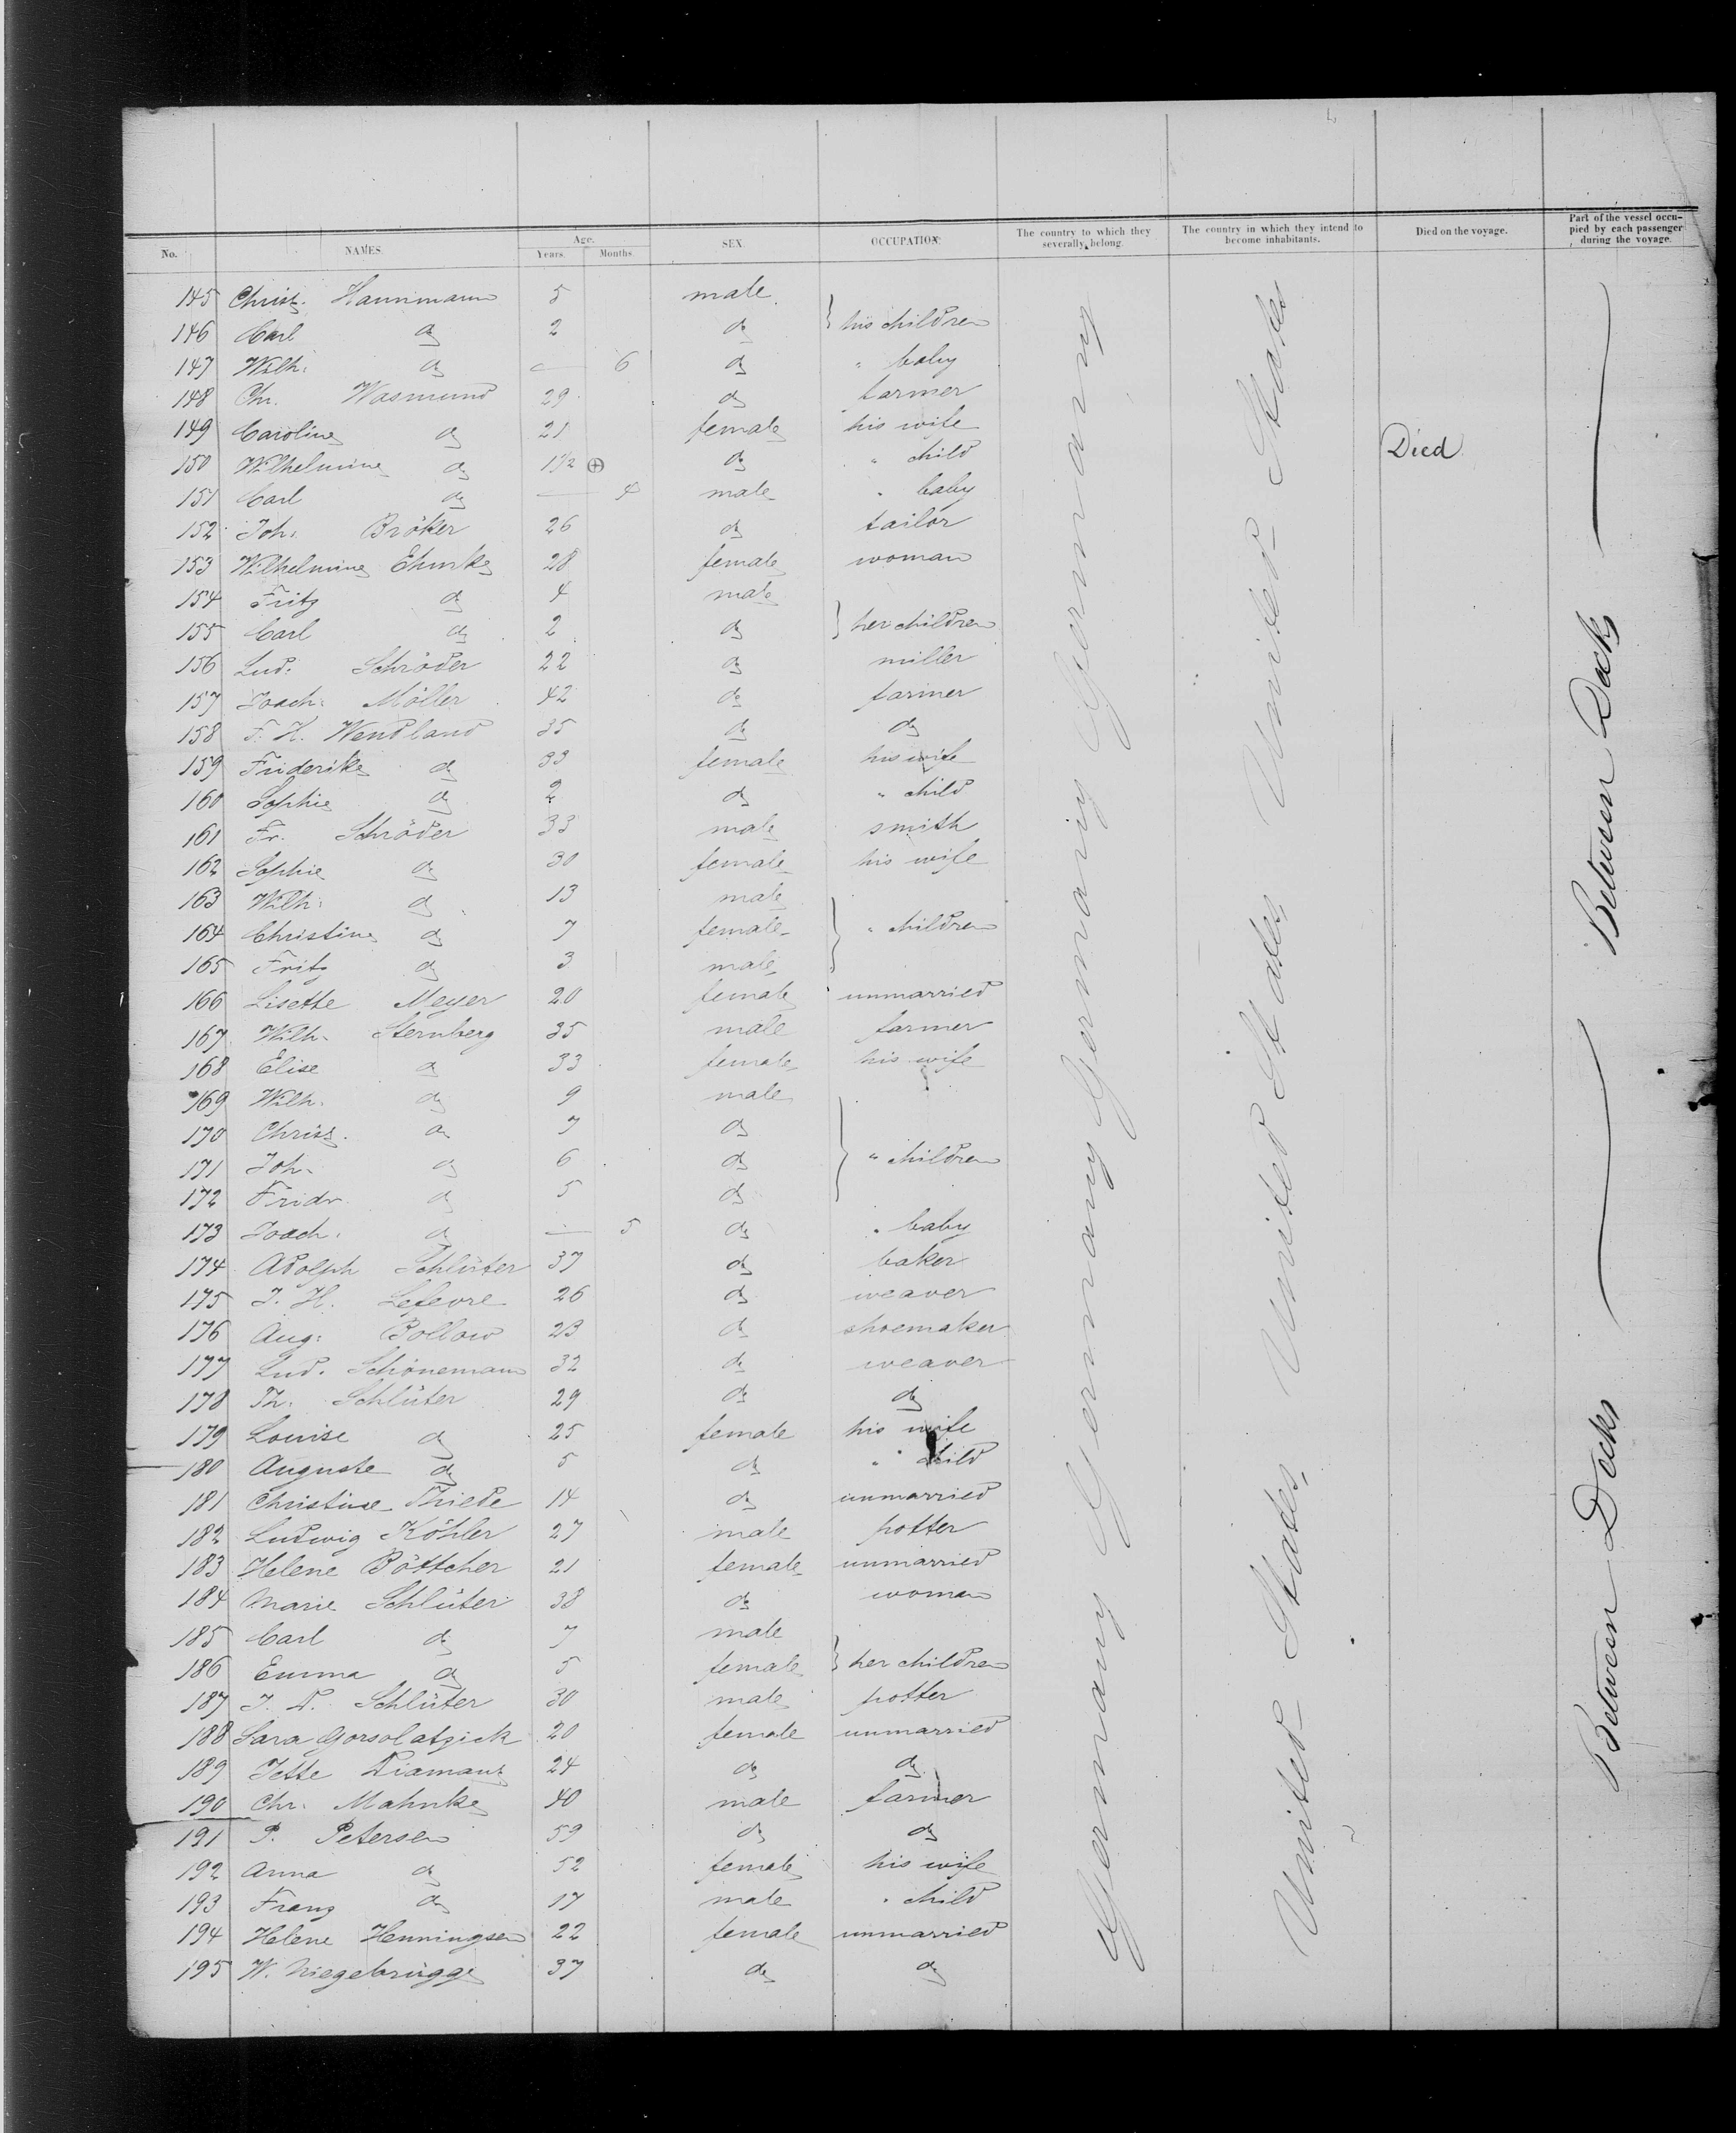 No. NAMES. Age. Years. Months. SEX. OCCUPATION. The country to which they severally belong. The country in which they intend to become inhabitants. Died on the voyage. Part of the vessel occupied by each passenger during the voyage.
145 Christ. Hannmann 5 male
146 Carl do 2 do } his children
147 Wilh. do — 6 do " baby
148 Chr. Wasmund 29 do farmer
149 Caroline do 21 female his wife
150 Wilhelmine do 1 1/2 ⊕ do " child Died
151 Carl do — 4 male " baby
152 Joh. Bröker 26 do tailor
153 Wilhelmine Ehmke 28 female woman
154 Fritz do 4 male
155 Carl do 2 do } her children
156 Lud. Schröder 22 do miller
157 Joach. Möller 42 do farmer
158 F. H. Wendland 35 do do
159 Friderike do 33 female his wife
160 Sophie do 2 do " child
161 Fr. Schröder 33 male smith
162 Sophie do 30 female his wife
163 Wilh. do 13 male
164 Christine do 7 female } " children
165 Fritz do 3 male
166 Lisette Meyer 20 female unmarried
167 Wilh. Sternberg 35 male farmer
168 Elise do 33 female his wife
169 Wilh. do 9 male
170 Christ. do 7 do
171 Joh. do 6 do } " children
172 Fridr. do 5 do
173 Joach. do — 5 do " baby
174 Adolph Schlüter 37 do baker
175 J. H. Lefevre 26 do weaver
176 Aug. Bollow 23 do shoemaker
177 Lud. Schönemann 32 do weaver
178 Th. Schlüter 29 do do
179 Louise do 25 female his wife
180 Auguste do 5 do " child
181 Christine Thiede 14 do unmarried
182 Ludwig Köhler 27 male potter
183 Helene Böttcher 21 female unmarried
184 Marie Schlüter 38 do woman
185 Carl do 7 male
186 Emma do 5 female } her children
187 J. D. Schlüter 30 male potter
188 Sara Gorsolatzick 20 female unmarried
189 Jette Diamant 24 do do
190 Chr. Mahnke 40 male farmer
191 P. Petersen 59 do do
192 Anna do 52 female his wife
193 Franz do 17 male " child
194 Helene Henningsen 22 female unmarried
195 W. Niegebrügge 37 do do
Germany Germany Germany Germany Germany
United States United States United States
Between Decks Between Decks